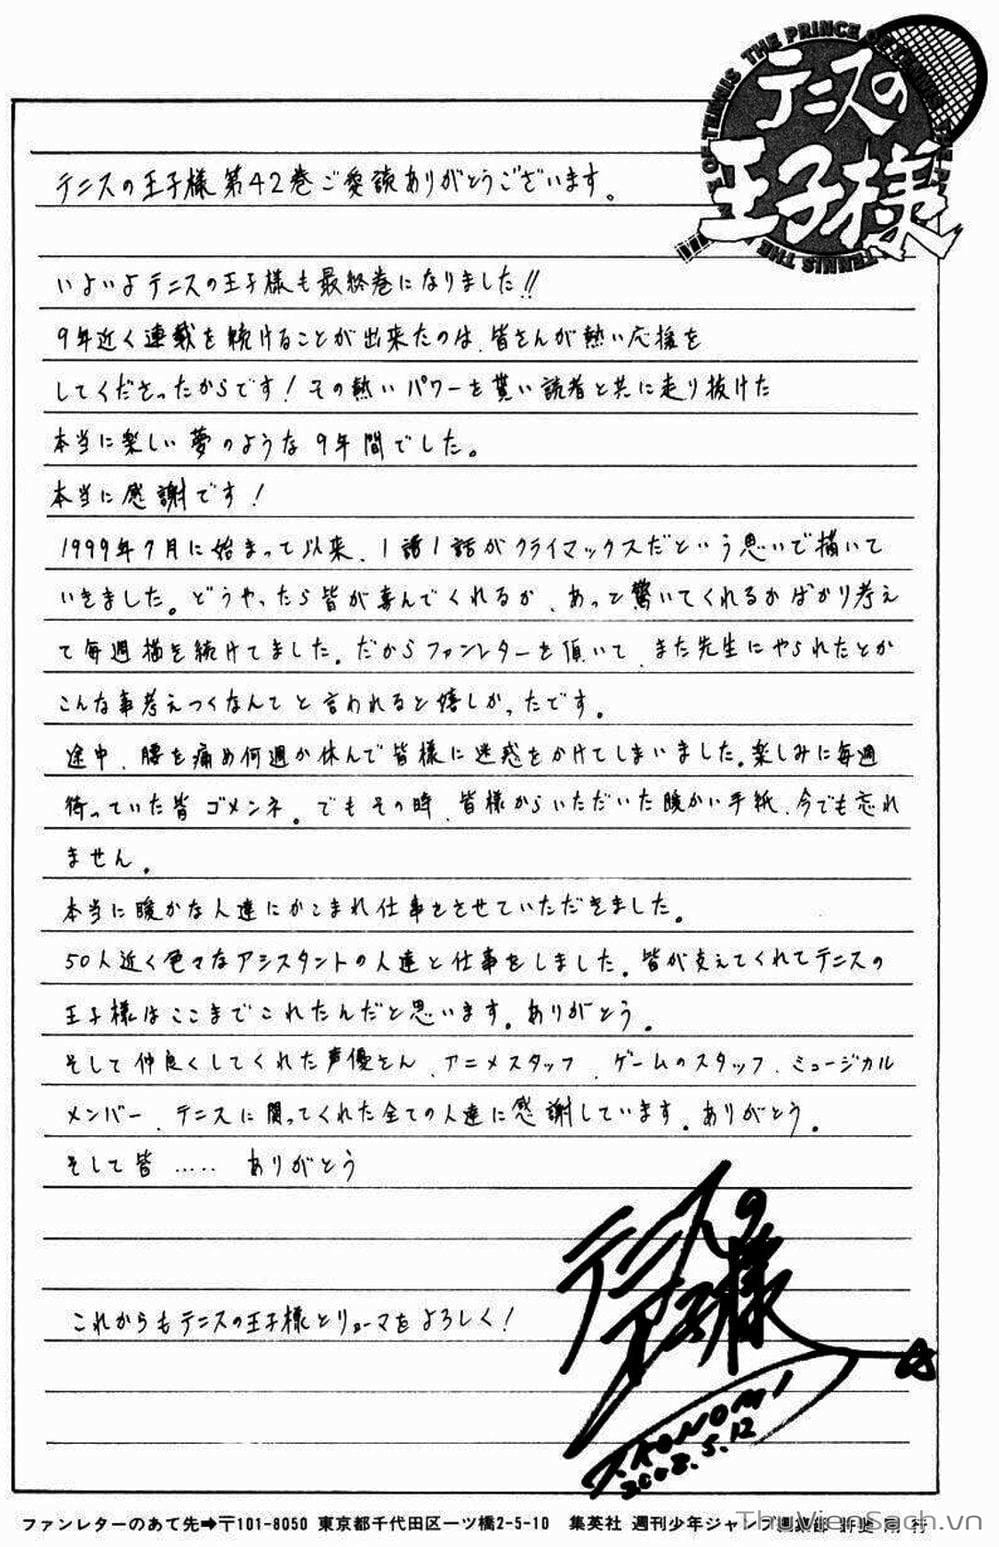 THE PRINCE OF TENNIS
テニスの
王子様
テニスの王子様第42巻ご愛読ありがとうございます。
いよいよテニスの王子様も最終巻になりました!!
9年近く連載を続けることが出来たのは、皆さんが熱い応援を
してくださったからです!その熱いパワーを貰い読者と共に走り抜けた
本当に楽しい夢のような9年間でした。
本当に感謝です!
1999年7月に始まって以来、1話1話がクライマックスだという思いで描いて
いきました。どうやったら皆が喜んでくれるか、あっと驚いてくれるかばかり考え
て毎週描を続けてました。だからファンレターを頂いて、また先生にやられたとか
こんな事考えつくなんてと言われると嬉しかったです。
途中、腰を痛め何週か休んで皆様に迷惑をかけてしまいました。楽しみに毎週
待っていた皆ゴメンネ。でもその時、皆様からいただいた暖かい手紙、今でも忘れ
ません。
本当に暖かな人達にかこまれ仕事をさせていただきました。
50人近く色々なアシスタントの人達と仕事をしました。皆が支えてくれてテニスの
王子様はここまでこれたんだと思います。ありがとう。
そして仲良くしてくれた声優さん、アニメスタッフ、ゲームのスタッフ、ミュージカル
メンバー、テニスに関ってくれた全ての人達に感謝しています。ありがとう。
そして皆…… ありがとう
これからもテニスの王子様とリョーマをよろしく!
テニスの
王子様
T.KONOMI
2008.5.12
ファンレターのあて先➡〒101-8050 東京都千代田区一ツ橋2-5-10 集英社 週刊少年ジャンプ編集部
ThuVienSach.vn